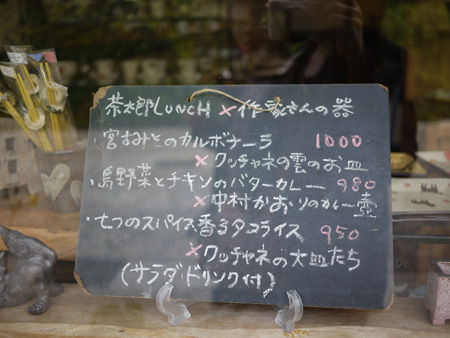 茶太郎LUNCH × 作家さんの器
・宮おみとのカルボナーラ 1000
×クッチャネの雲のお皿
・島野菜とチキンのバターカレー 980
×中村かおりのカレー壺
・七つのスパイス香るタコライス 950
×クッチャネの大皿たち
(サラダ・ドリンク付)